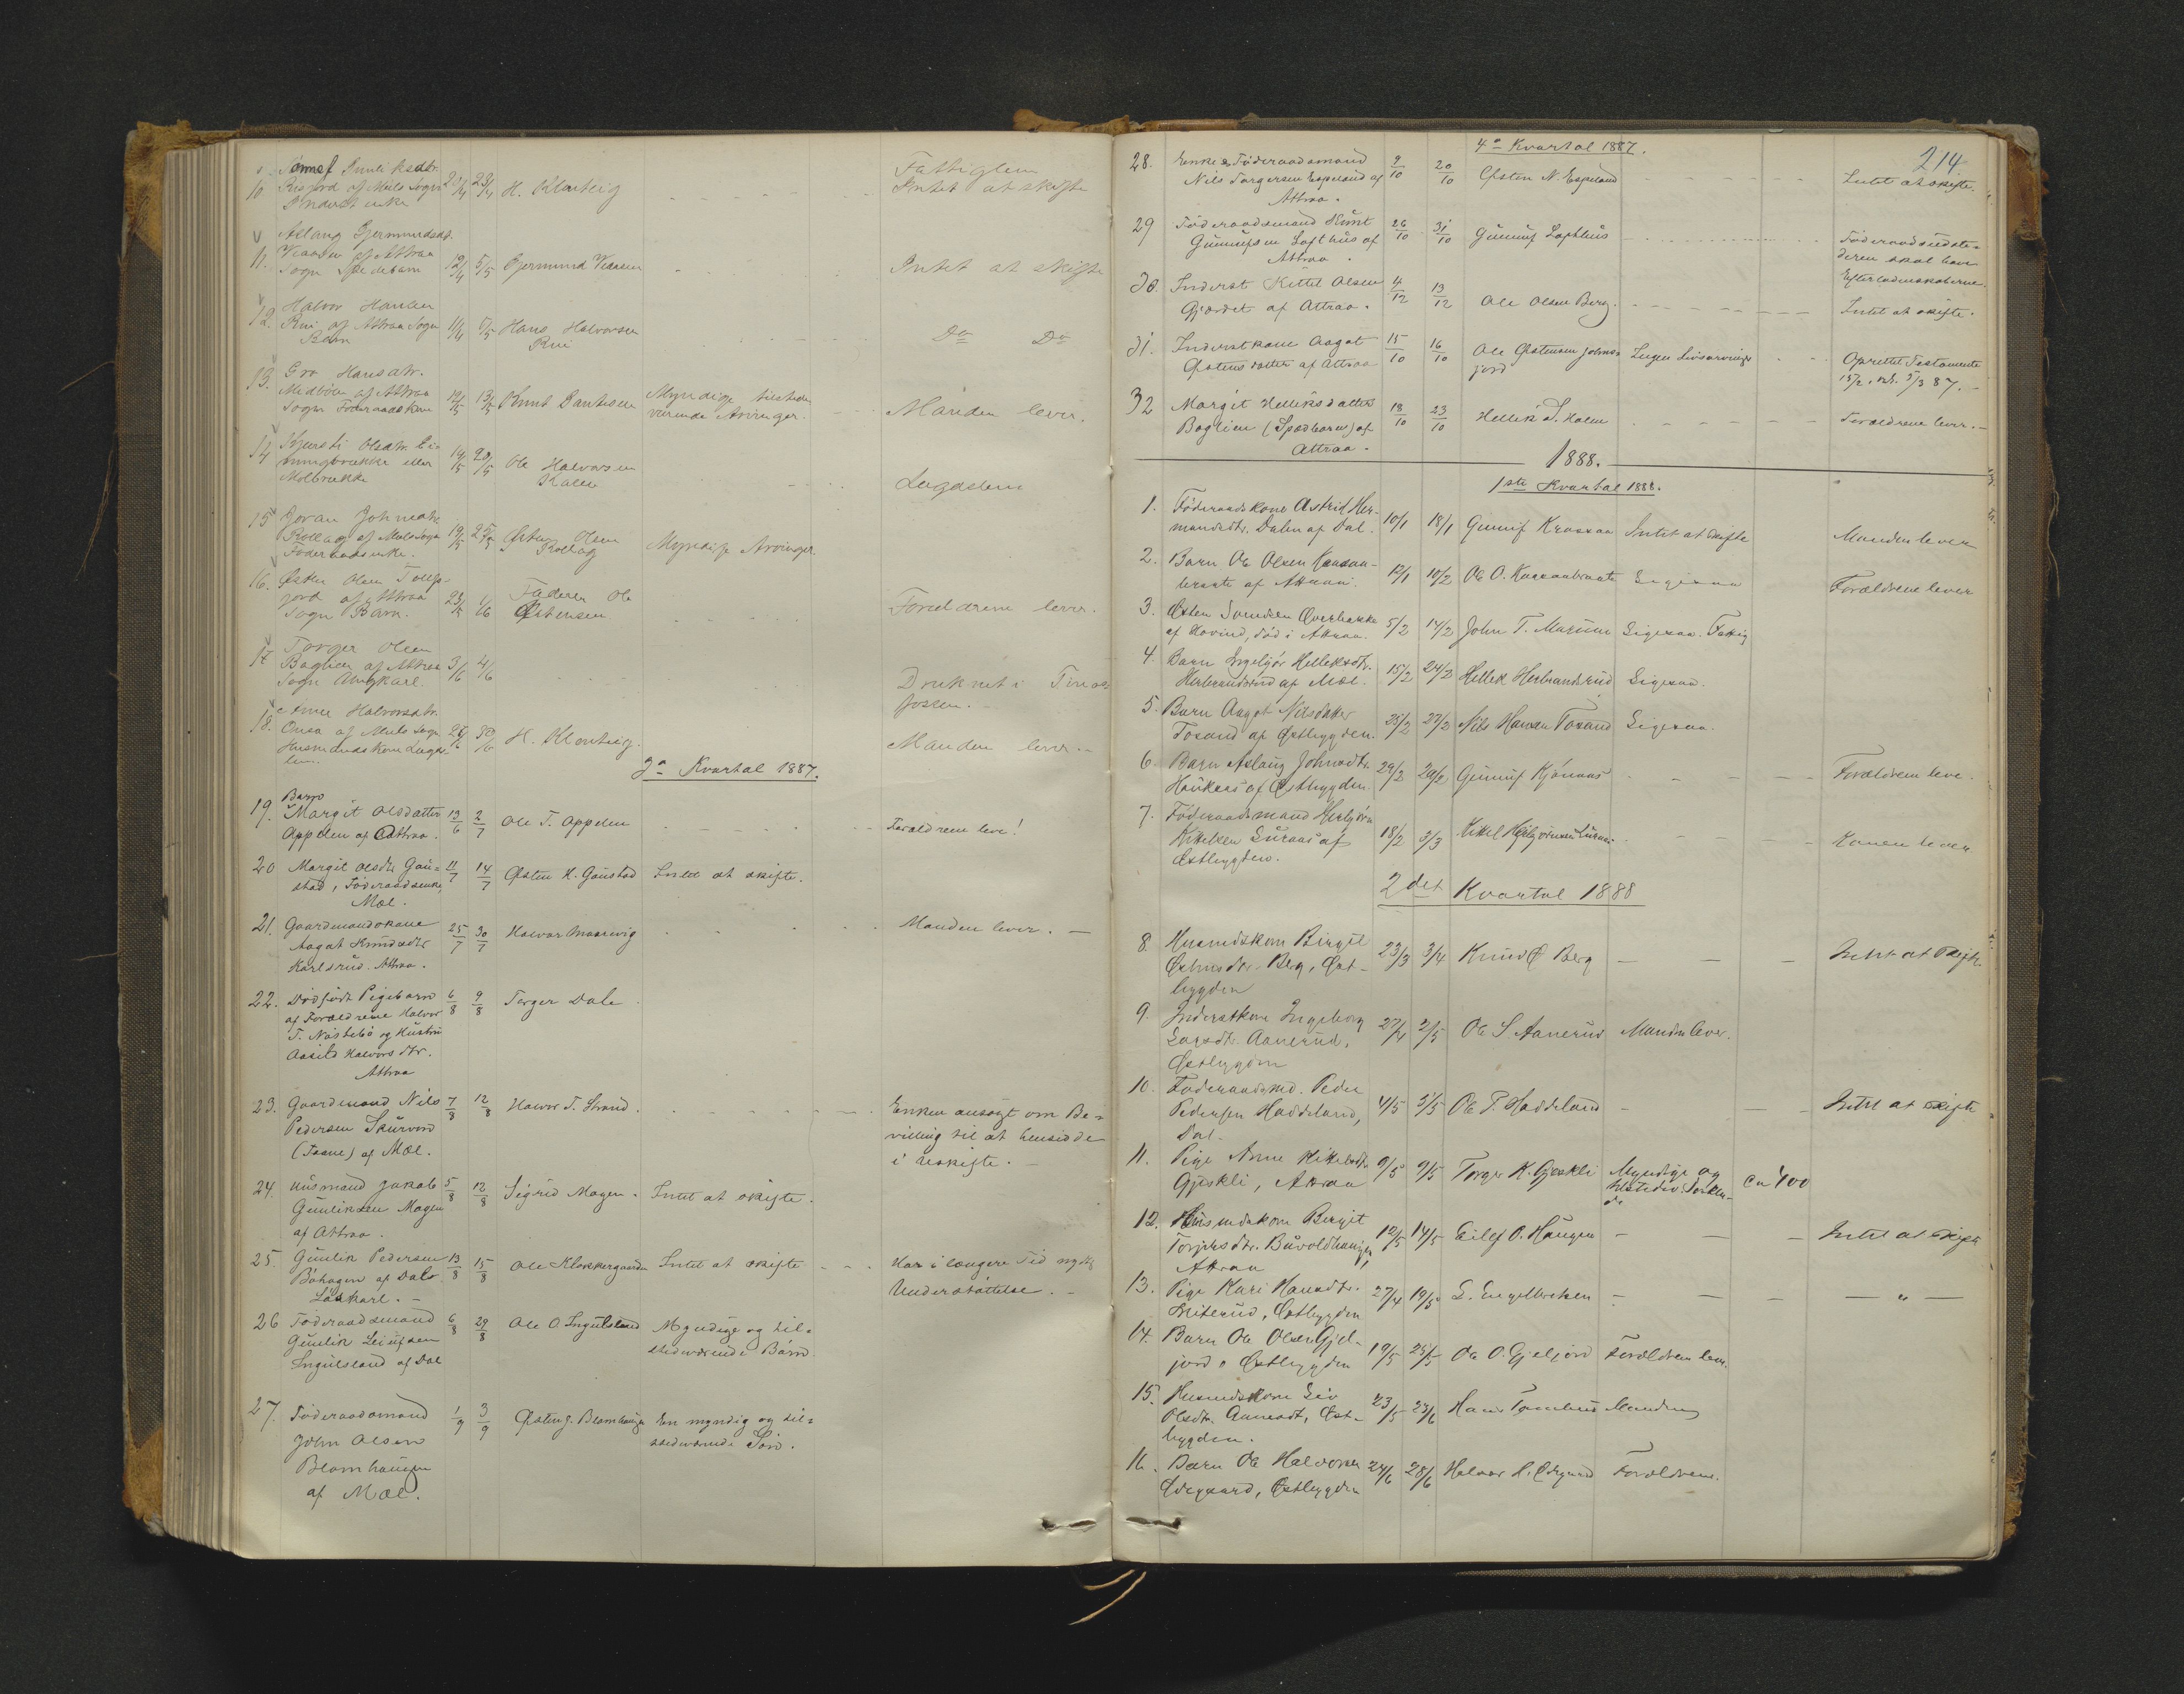 10
Risjord af Mæls Sogn 21/4 23/4 H. Klonteig
Inderst enke
Fattiglem
Intet at skifte
Aslaug Gjermundsdr.
11. Vraaen af Attraa 12/4 5/5 Gjermund Vraaen
Sogn Spædebarn
Intet at skifte
Halvor Hansen
12. Rui af Attraa Sogn 1/4 5/5 Hans Halvorsen
Barn Rui
Do Do
Gro Hansdtr.
13. Midbøen af Attraa
Sogn Føderaadskone 13/5 Knut
Myndige tilstede
værende Arvinger.
Manden lever.
14 Kjersti Olsdtr.
19/5 20/5 Ole Halvorsen
Kalen
Lægdslem
15 Joran Johnsdtr
Rollag af Mæls Sogn 19/5 Østen Olsen
Føderaadsenke. Rollag
Myndige Arvinger.
16. Østen Olsen
jord af Attraa 23/5 1/6 Faderen Ole
Sogn Barn. Østensen
Forældrene lever.
17 Torger Olsen
Bøglien af Attraa 3/6 4/6
Sogn Ungkarl.
Druknet i Tinns
fossen.
18. Anne Halvorsdtr.
af Mæls Sogn H. Klonteig.
Husmandskone Lægds
lem.
Manden lever.-
3die Kvartal 1887.
Barn
19. Margit Olsdatter 13/6 2/7 Ole T. Appelen
Appelen af Attraa.
Forældrene leve!
20 Margit Olsdtr Gau=
stad, Føderaadsenke, 11/7 14/7 Østen H. Gaustad Intet at skifte.
Mæl.
21. Gaardmandskone
Aagat Knudsdtr 25/7 30/7 Halvor Maarvig
Karlsrud. Attraa.
Manden lever. —
22. Dødfødt Pigebarn 6/8 9/8 Torger Dale
af Forældrene Halvor
T. Nøstebø og Hustru
Aasild Halvorsdtr.
Attraa
23. Gaardmand Nils 7/8 12/8 Halvor T. Strand.
Pedersen Skurvord
af Mæl.
Enken ansøgt om Be=
villing til at hensidde
i Uskifte. —
24. Husmand Jakob 5/8 12/8 Sigrid Mogen. Intet at skifte.
Gunliksen Mogen
af Attraa.
25. Gunlik Pedersen 13/8 15/8 Ole Klokkergaarden Intet at skifte
Bøhagen af Dals
Løskarl. —
Har i længere Tid nydt
Understøttelse. —
26 Føderaadsmand 6/8 29/8 Ole O. Ingulsland Myndige og til=
Gunlik Leiufsen stedværende Børn.
Ingulsland af Dal
27. Føderaadsmand 1/9 3/9 Østen J. Blomhaugen En myndig og til=
John Olsen stedværende Søn.
Blomhaugen
af Mæl.
214.
4de Kvartal 1887.
28. Enke & Føderaadsmand 9/10 20/10 Østen N. Espeland
Nils Torgersen Espeland af
Attraa.
Intet at skifte.
29 Føderaadsmand Knut 26/10 31/10 Gunnuf Lofthus
Gunnufsen Lofthus af
Attraa.
Føderaadsudste=
deren skal have
Efterladenskaberne.
30. Inderst Kittil Olsen 4/12 13/12 Ole Olsen Berg.
Gjordet af Attraa.
Intet at skifte.
31. Inderstkone Aagot 15/10 16/10 Ole Østensen Johns= Ingen Livsarvinger
Østensdatter af Attraa jord
Oprettet Testamente
32 Margit Helliksdatter 18/10 23/10 Hellik T. Holm
Bøglien (Spædbarn) af
Attraa.
Forældrene lever. —
1888.
1ste Kvartal 1888.
1. Føderaadskone Astrid Her-
mundsdtr. Dalen af Dal. 10/1 18/1 Gunnuf Krossaa Intet at skifte
Manden lever
2. Barn Ole Olsen Kaasan-
braate af Attraa. 12/1 10/2 Ole O. Kaasanbraate Ligesaa
Forældrene lever
3. Østen Svendsen Øverbakke
af Hovind, død i Attraa. 5/2 14/2 John T. Marum Ligesaa. Fattig
4. Barn Ingebjør Helleksdtr.
Herbrandsrud af Mæl. 15/2 24/2 Hellek Herbrandsrud Ligesaa.
5. Barn Aagot Nilsdatter
Fosand af Østbygden. 25/2 27/2 Nils Hansen Fosand Ligesaa.
6. Barn Aslaug Johnsdtr.
Haukaas af Østbygden. 29/2 29/2 Gunnuf Kjønaas
Forældrene leve.
7. Føderaadsmand Herbjørn
Kittelsen Luraas af 18/2 3/3 Kittel Herbjørnsen Luraas
Østbygden.
Konen lever
2det Kvartal 1888
8. Husmdskone Birgit
Østensdtr. Berg, Øst- 23/3 3/4 Knud Ø Berg
bygden
Intet at skifte
9. Inderstkone Ingeborg
Larsdtr. Aanerud, 27/4 2/5 Ole S Aanerud Manden lever.
Østbygden
10. Føderaadsmd. Peder
Pedersen Haddeland, 4/5 5/5 Ole P. Haddeland
Dal.
Intet at skifte
11. Pige Anne Kittelsdtr
Gjøskli, Attraa 9/5 9/5 Torger K. Gjøskli Myndige og
Ca 400
12. Husmdskone Bergit
Torjusdtr. Buvoldhaugen, 12/5 14/5 Eilef O. Haugen
Attraa
Intet at skifte
13. Pige Kari Hansdtr.
Østbygden 27/4 19/5 L. Engelbretsen
— „ —
14. Barn Ole Olsen Gjel-
jord Østbygden 19/5 25/5 Ole O. Gjeljord Forældrene leve.
15. Husmdskone Liv
Olsdtr. Øst- 23/5 23/6 Hans Manden
bygden.
16. Barn Ole Halvorsen 24/6 28/6 Halvor H. Ødegaard Forældrene.
Ødegaard, Østbygden